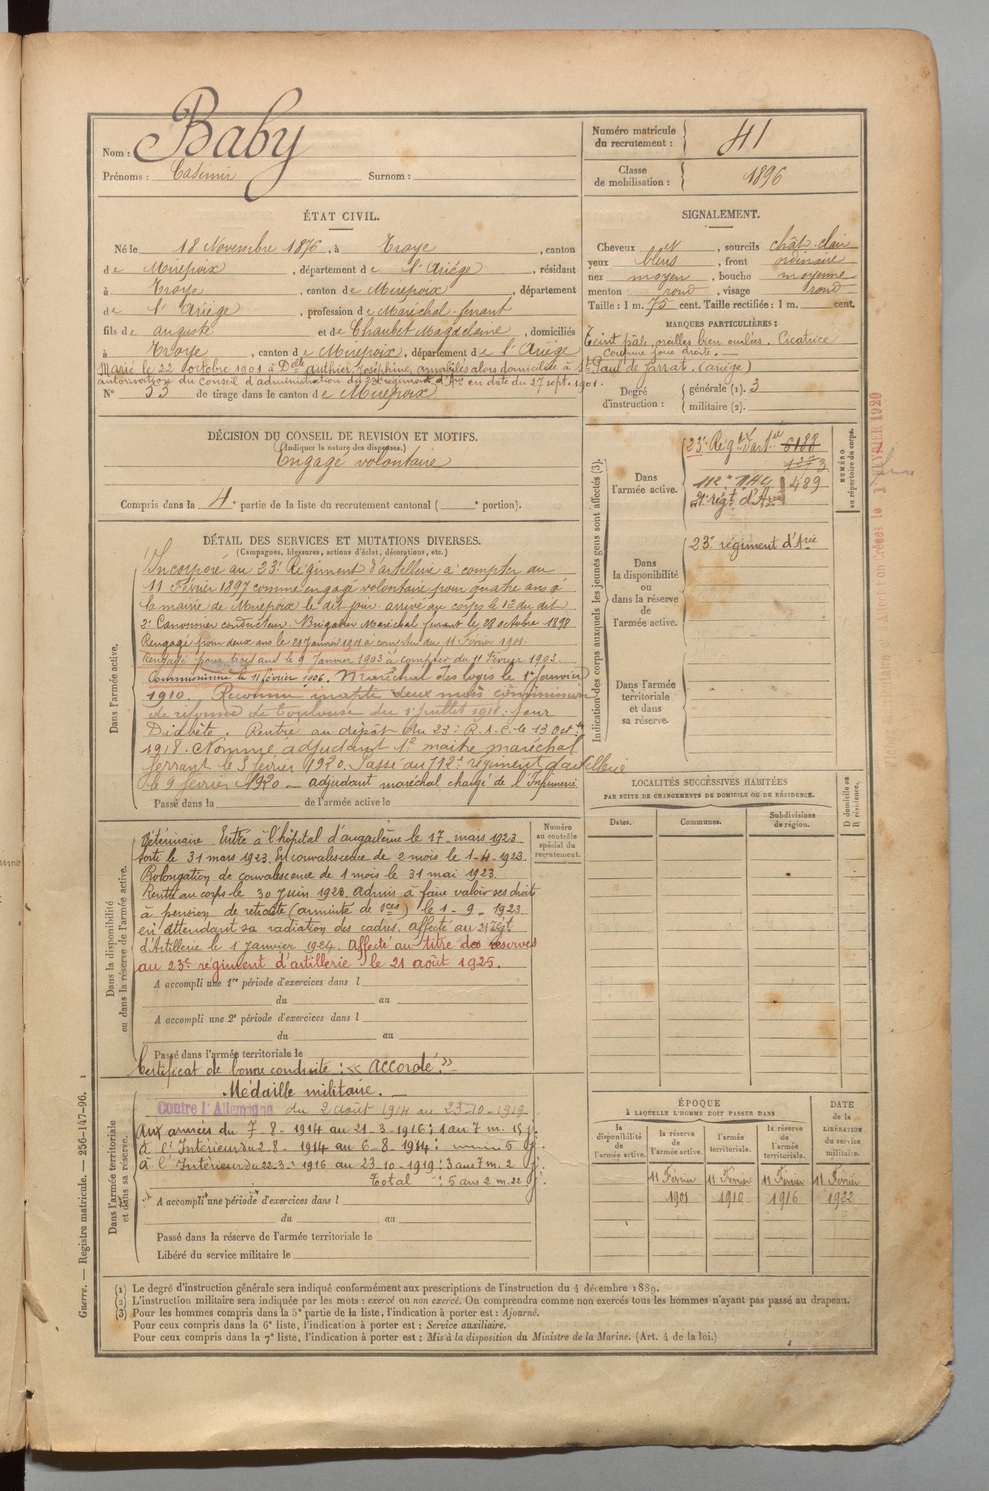 Nom : Baby
Prénoms : Casimir Surnom :
Numéro matricule du recrutement : 41
Classe de mobilisation : 1896
ÉTAT CIVIL.
Né le 18 Novembre 1876, à Troye, canton
de Mirepoix, département de l'Ariège, résidant
à Troye, canton de Mirepoix, département
de l'Ariège, profession de Maréchal-ferrant
fils de auguste et de Chaubet Magdelaine, domiciliés
à Troye, canton de Mirepoix, département de l'Ariège
Marié le 22 octobre 1901 à Delle authier Joséphine, annabilés alors domiciliée à St Paul de Jarrat. (ariège)
autorisation du Conseil d'administration du 23e régiment d'Arie en date du 27 sept. 1901.
No 33 de tirage dans le canton de Mirepoix
SIGNALEMENT.
Cheveux , sourcils chât. clair
yeux bleus, front ordinaire
nez moyen, bouche moyenne
menton rond, visage rond
Taille : 1 m. 75 cent. Taille rectifiée : 1 m. cent.
MARQUES PARTICULIÈRES :
Teint pâle, oreilles bien ourlées. Cicatrice
joue droite.
Degré d'instruction : générale (1). 3
militaire (2).
DÉCISION DU CONSEIL DE REVISION ET MOTIFS.
(Indiquer la nature des dispenses.)
Engagé volontaire
Compris dans la 4e partie de la liste du recrutement cantonal ( e portion).
DÉTAIL DES SERVICES ET MUTATIONS DIVERSES.
(Campagnes, blessures, actions d'éclat, décorations, etc.)
Dans l'armée active.
Incorporé au 23e Régiment d'artillerie à compter du
11 Février 1897 comme engagé volontaire pour quatre ans à
la mairie de Mirepoix le dit jour. arrivé au corps le 12 du dit
2e Canonnier conducteur. Brigadier Maréchal ferrant le 28 octobre 1898
Rengagé pour deux ans le 21 Janvier 1901 à compter du 11 Février 1901.
Rengagé pour trois ans le 9 Janvier 1903 à compter du 11 Février 1903.
Commissionné le 11 février 1906. Maréchal des logis le 1er Janvier
1910. Reconnu inapte deux mois commission
de réforme de Toulouse du 1er juillet 1918. pour
Diabète. Rentré au dépôt du 23e R.A.C. le 13 Octbre
1918. Nommé adjudant 1er maitre maréchal
ferrant le 3 février 1920. Passé au 112e régiment d'artillerie
le 9 février 1920 — adjudant maréchal chargé de l'Infirmerie
Passé dans la de l'armée active le
Dans la disponibilité ou dans la réserve de l'armée active.
Vétérinaire Entré à l'hôpital d'angoulème le 17 mars 1923
sorti le 31 mars 1923. En convalescence de 2 mois le 1-4-1923.
Prolongation de convalescence de 1 mois le 31 mai 1923.
Rentré au corps le 30 Juin 1923. Admis à faire valoir ses droits
à pension de retraite (ancienneté de sces) le 1-9-1923
en attendant sa radiation des cadres. affecté au 21 Régt
d'Artillerie le 1 janvier 1924. Affecté au titre des réserves
au 23e régiment d'artillerie le 21 août 1925.
A accompli une 1re période d'exercices dans l
du au
A accompli une 2e période d'exercices dans l
du au
Passé dans l'armée territoriale le
Certificat de bonne conduite : « Accordé. »
Numéro au contrôle spécial du recrutement.
Dans l'armée territoriale et dans sa réserve.
Médaille militaire. —
Contre l'Allemagne du 2 août 1914 au 23-10-1919
Aux armées du 7-8-1914 au 21-3-1916 : 1 an 7 m. 15 j.
à l'Intérieur du 2-8-1914 au 6-8-1914 : 5 j.
à l'Intérieur du 22-3-1916 au 23-10-1919 : 3 ans 7 m. 2 j.
Total : 5 ans 2 m. 22 j.
A accompli une période d'exercices dans l
du au
Passé dans la réserve de l'armée territoriale le
Libéré du service militaire le
Indication des corps auxquels les jeunes gens sont affectés (3).
NUMÉRO au répertoire du corps.
Dans l'armée active.
23e Régt d'artie 6188
1273
112e RAL 489
21e régt d'Arie
Dans la disponibilité ou dans la réserve de l'armée active.
23e régiment d'Arie
Dans l'armée territoriale et dans sa réserve.
LOCALITÉS SUCCESSIVES HABITÉES
PAR SUITE DE CHANGEMENTS DE DOMICILE OU DE RÉSIDENCE.
Dates. Communes. Subdivisions de région. D domicile ou R résidence.
ÉPOQUE
À LAQUELLE L'HOMME DOIT PASSER DANS
la disponibilité de l'armée active. la réserve de l'armée active. l'armée territoriale. la réserve de l'armée territoriale.
DATE de la LIBÉRATION du service militaire.
11 Février 1901
11 Février 1910
11 Février 1916
11 Février 1922
(1) Le degré d'instruction générale sera indiqué conformément aux prescriptions de l'instruction du 4 décembre 1889.
(2) L'instruction militaire sera indiquée par les mots : exercé ou non exercé. On comprendra comme non exercés tous les hommes n'ayant pas passé au drapeau.
(3) Pour les hommes compris dans la 5e partie de la liste, l'indication à porter est : Ajourné.
Pour ceux compris dans la 6e liste, l'indication à porter est : Service auxiliaire.
Pour ceux compris dans la 7e liste, l'indication à porter est : Mis à la disposition du Ministre de la Marine. (Art. 4 de la loi.)
Guerre. — Registre matricule. — 256-147-96.